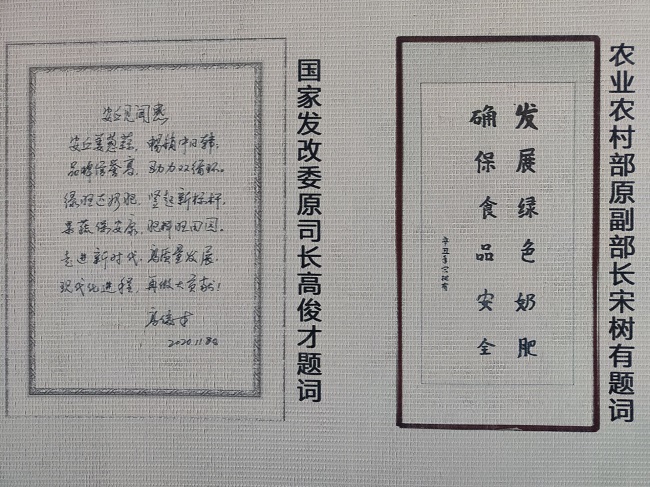 安丘见闻感
安丘姜葱蒜，畅销中日韩。
品牌信誉高，助力双循环。
绿肥与奶肥，竖起新标杆，
果蔬保安康，肥料肥田园。
走进新时代，高质量发展，
现代化进程，再做大贡献！
高俊才
2020.11
国家发改委原司长高俊才题词
发展绿色奶肥
确保食品安全
辛丑 宋树有
农业农村部原副部长宋树有题词